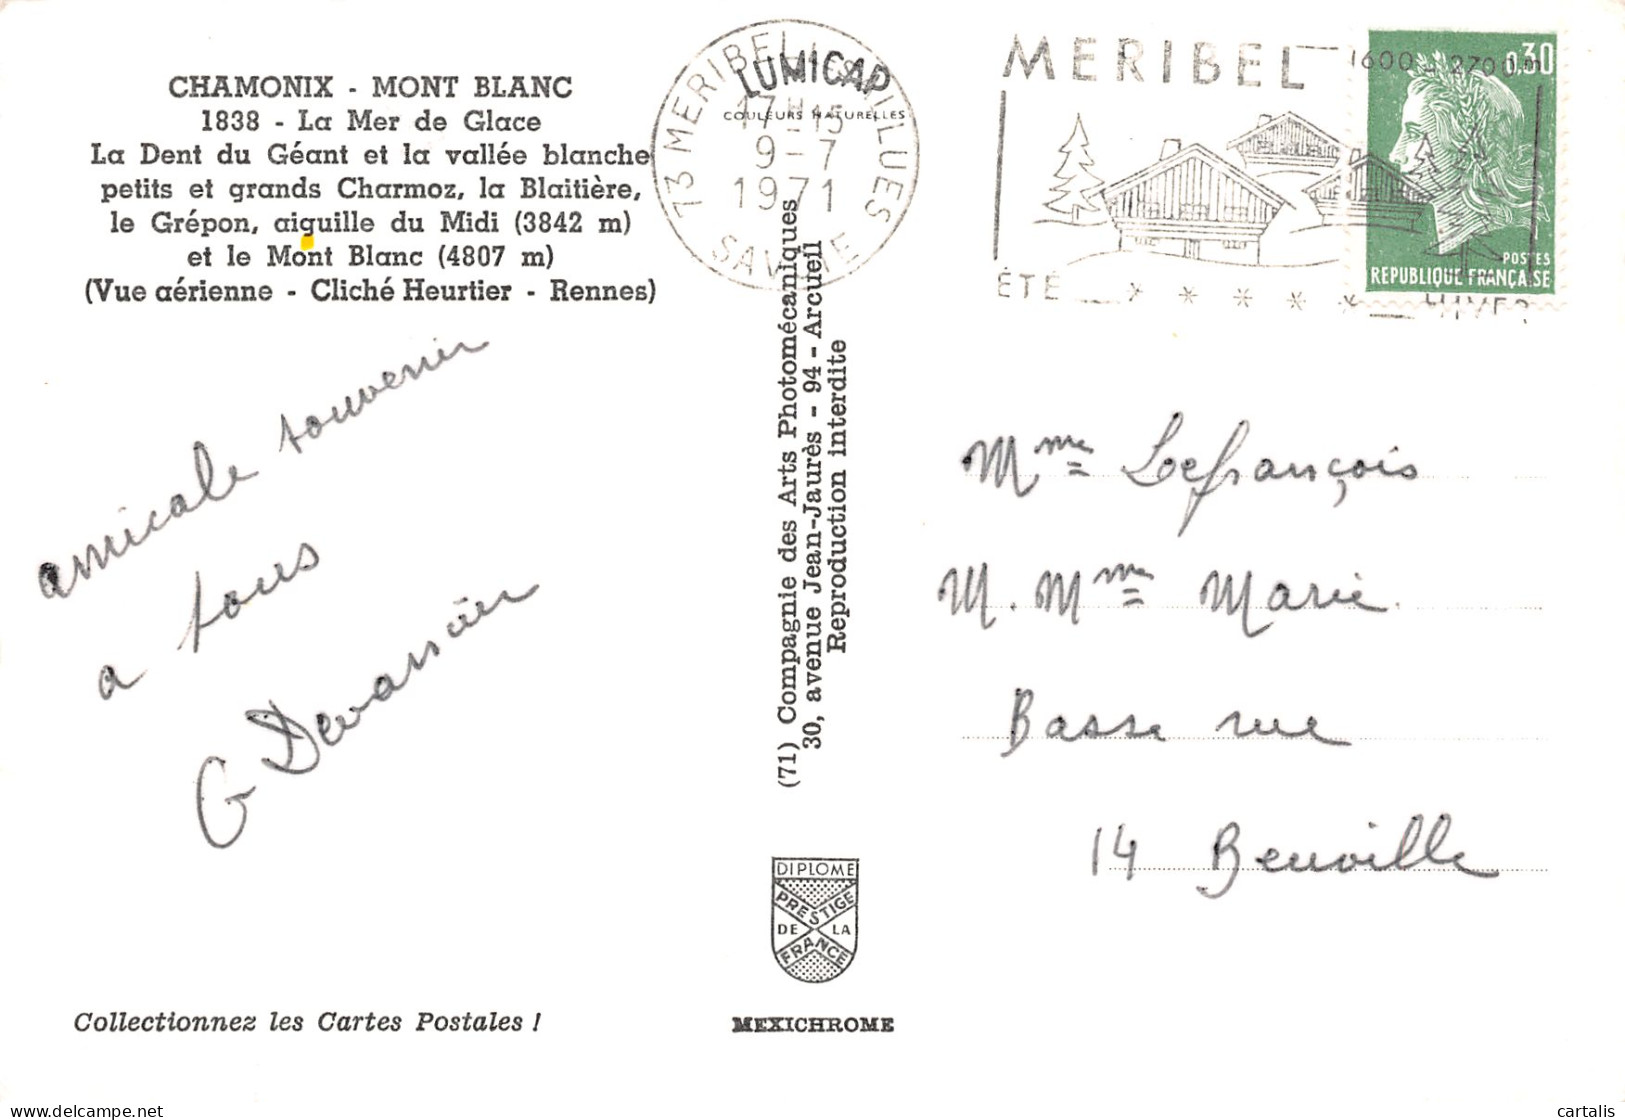 CHAMONIX - MONT BLANC
1838 - La Mer de Glace
La Dent du Géant et la vallée blanche
petits et grands Charmoz, la Blaitière,
le Grépon, aiguille du Midi (3842 m)
et le Mont Blanc (4807 m)
(Vue aérienne - Cliché Heurtier - Rennes)
LUMICAP
COULEURS NATURELLES
73 MERIBEL LES ALLUES
17H-15
9-7
1971
SAVOIE
MERIBEL 1600-2700m
ÉTÉ * * * * * HIVER
0,30
POSTES
REPUBLIQUE FRANÇAISE
amicale souvenir
a tous
G
(71) Compagnie des Arts Photomécaniques
30, avenue Jean-Jaurès - 94 - Arcueil
Reproduction interdite
Mme Lefrançois
M. Mme Marie
Basse rue
14 Beuville
DIPLOME
PRESTIGE
DE LA
FRANCE
Collectionnez les Cartes Postales !
MEXICHROME
cartalis